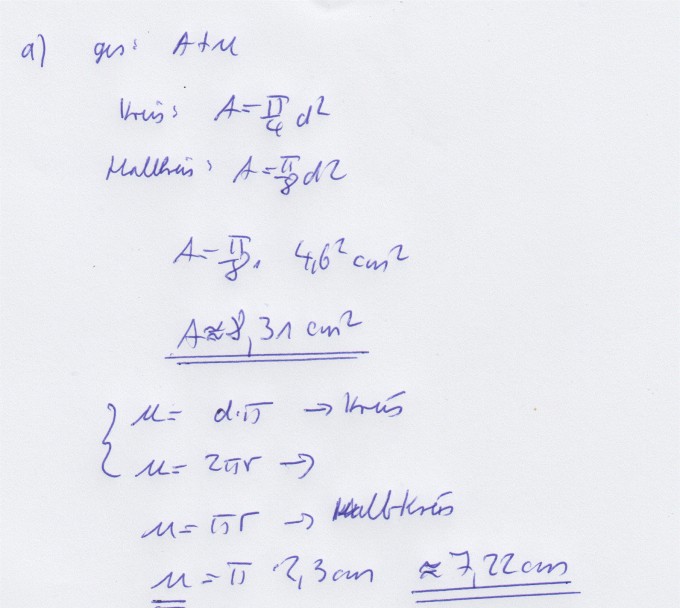 a) ges: A+u
Kreis: A=π/4 d²
Halbkreis: A=π/8 d²
A=π/8 · 4,6² cm²
A≈8,31 cm²
u= d·π → Kreis
u= 2πr →
u= πr → Halbkreis
u = π · 2,3cm ≈7,22cm